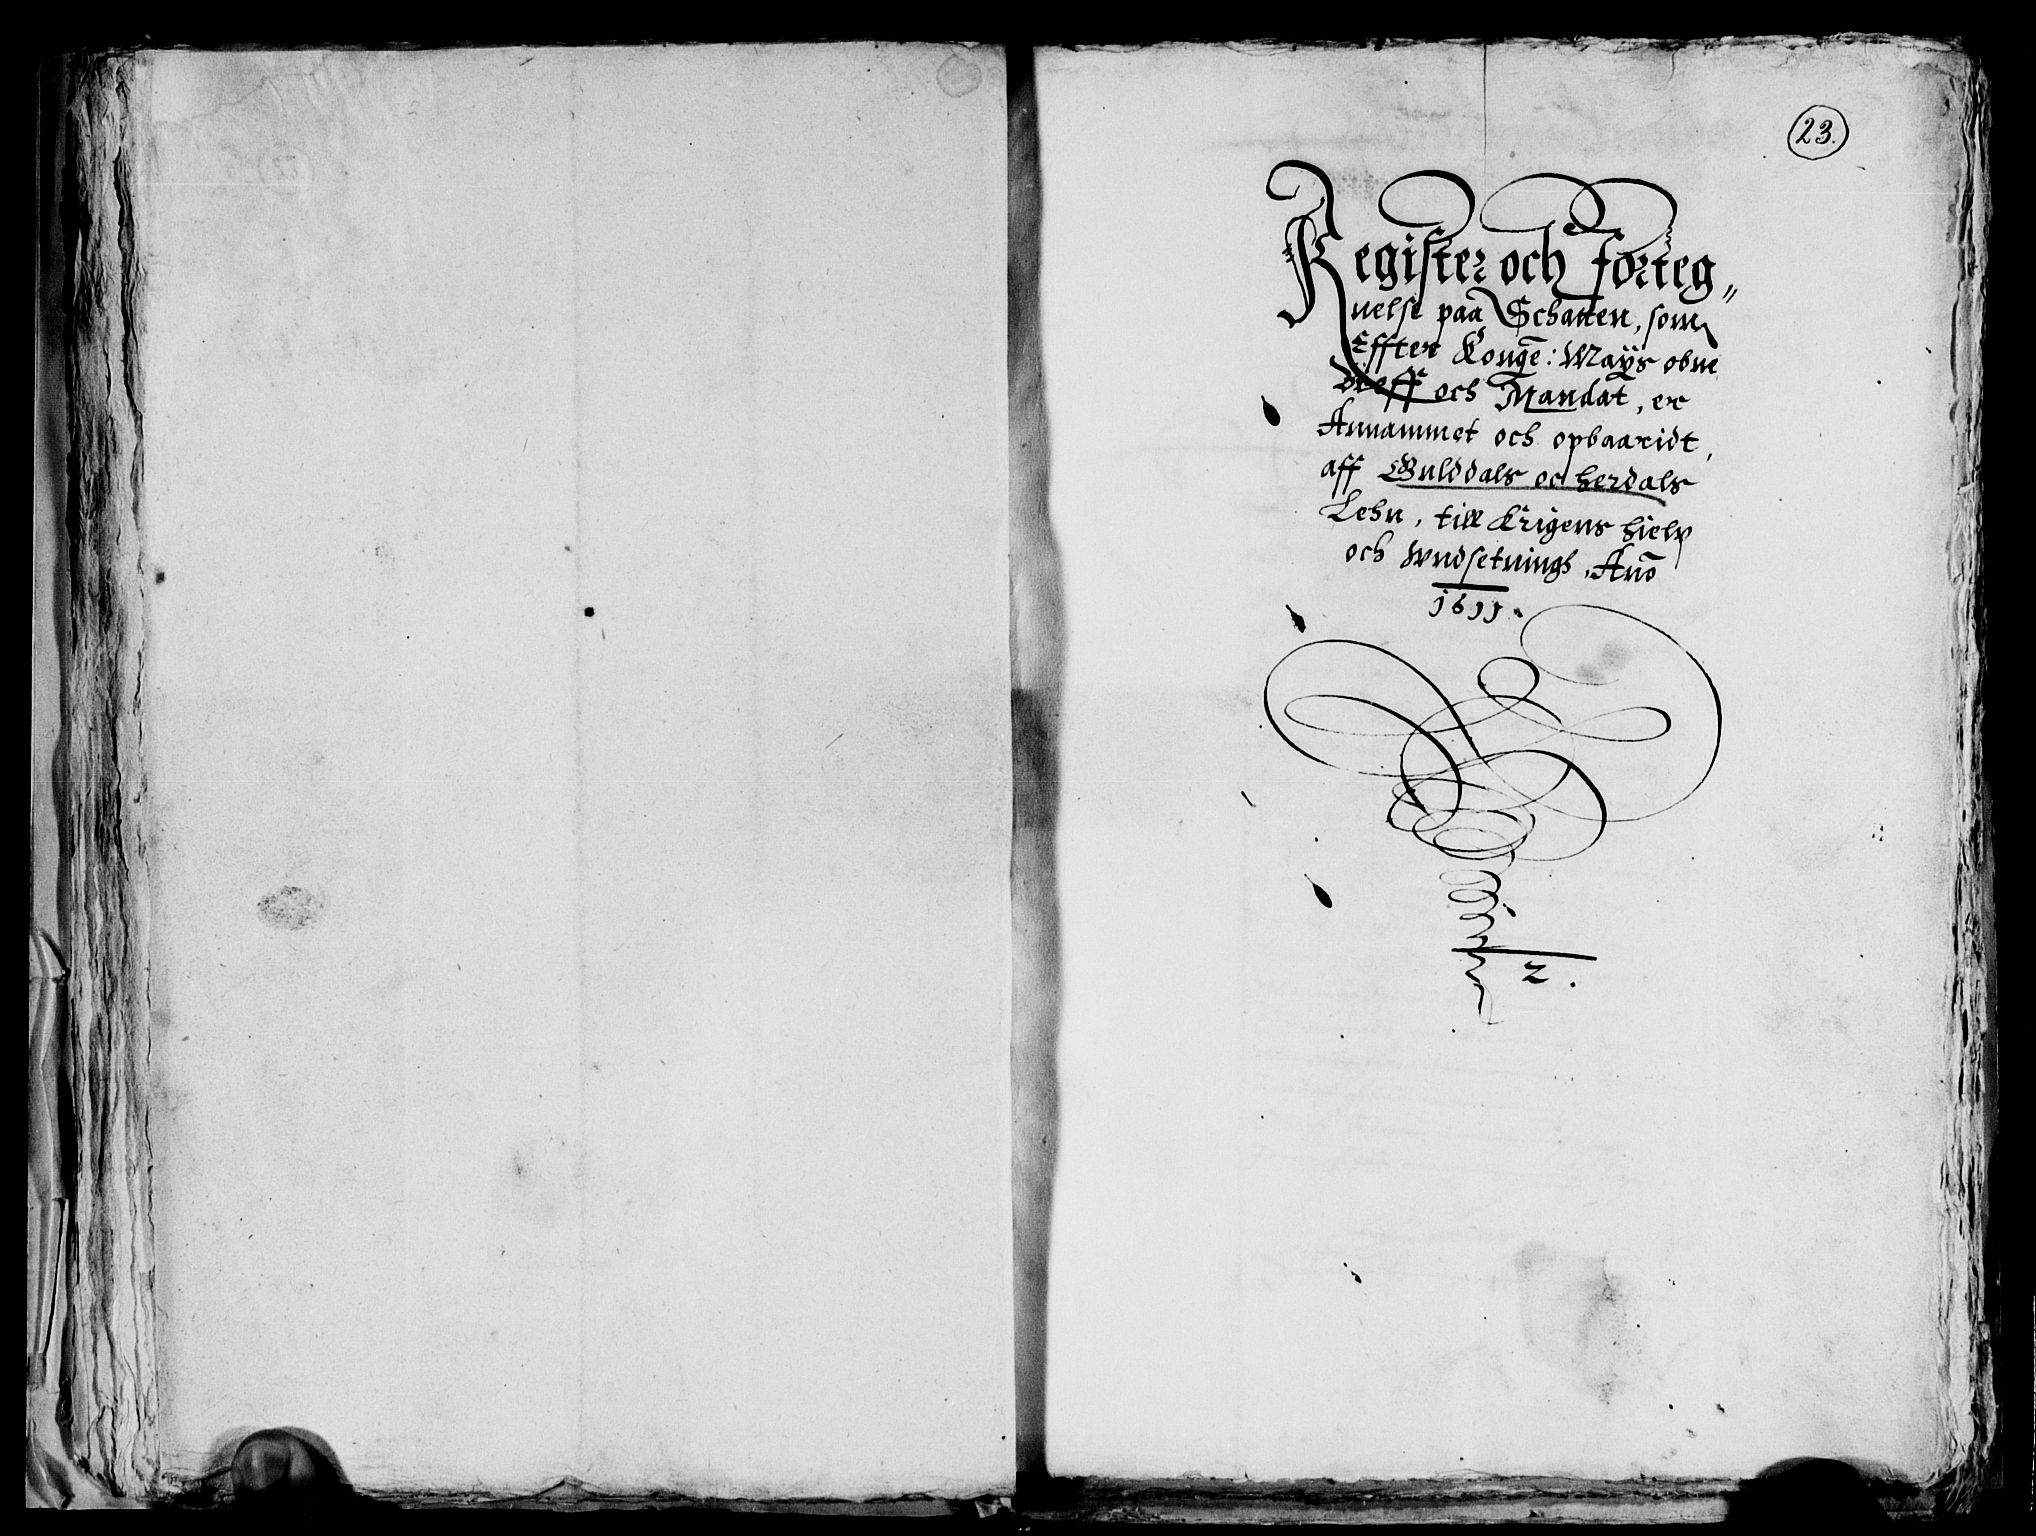 23.
Register och forteg„
nelse paa Schatten, som
Effter Konge: Mays obne
breff och Mandat, er
Annammet och opbaaridt,
aff Gulddals oc herdals
Lehn, till Krigens hielp
och wndsetnings, Ano
1611.
2.